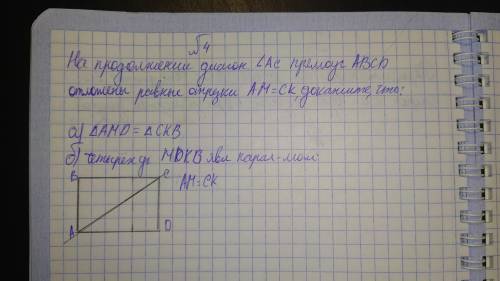 №4
На продолжении диагон ∠AC прямоуг ABCD
отложены равные отрезки AM=CK, докажите, что:
а) ΔAMD = ΔCKB
б) четырех-к MDKB явл парал-мом
B C AM=CK
A D